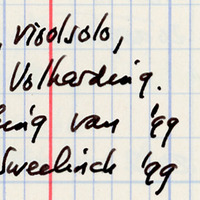 , vioolsolo,
Volharding.
ing van '99
Sweelinck '99